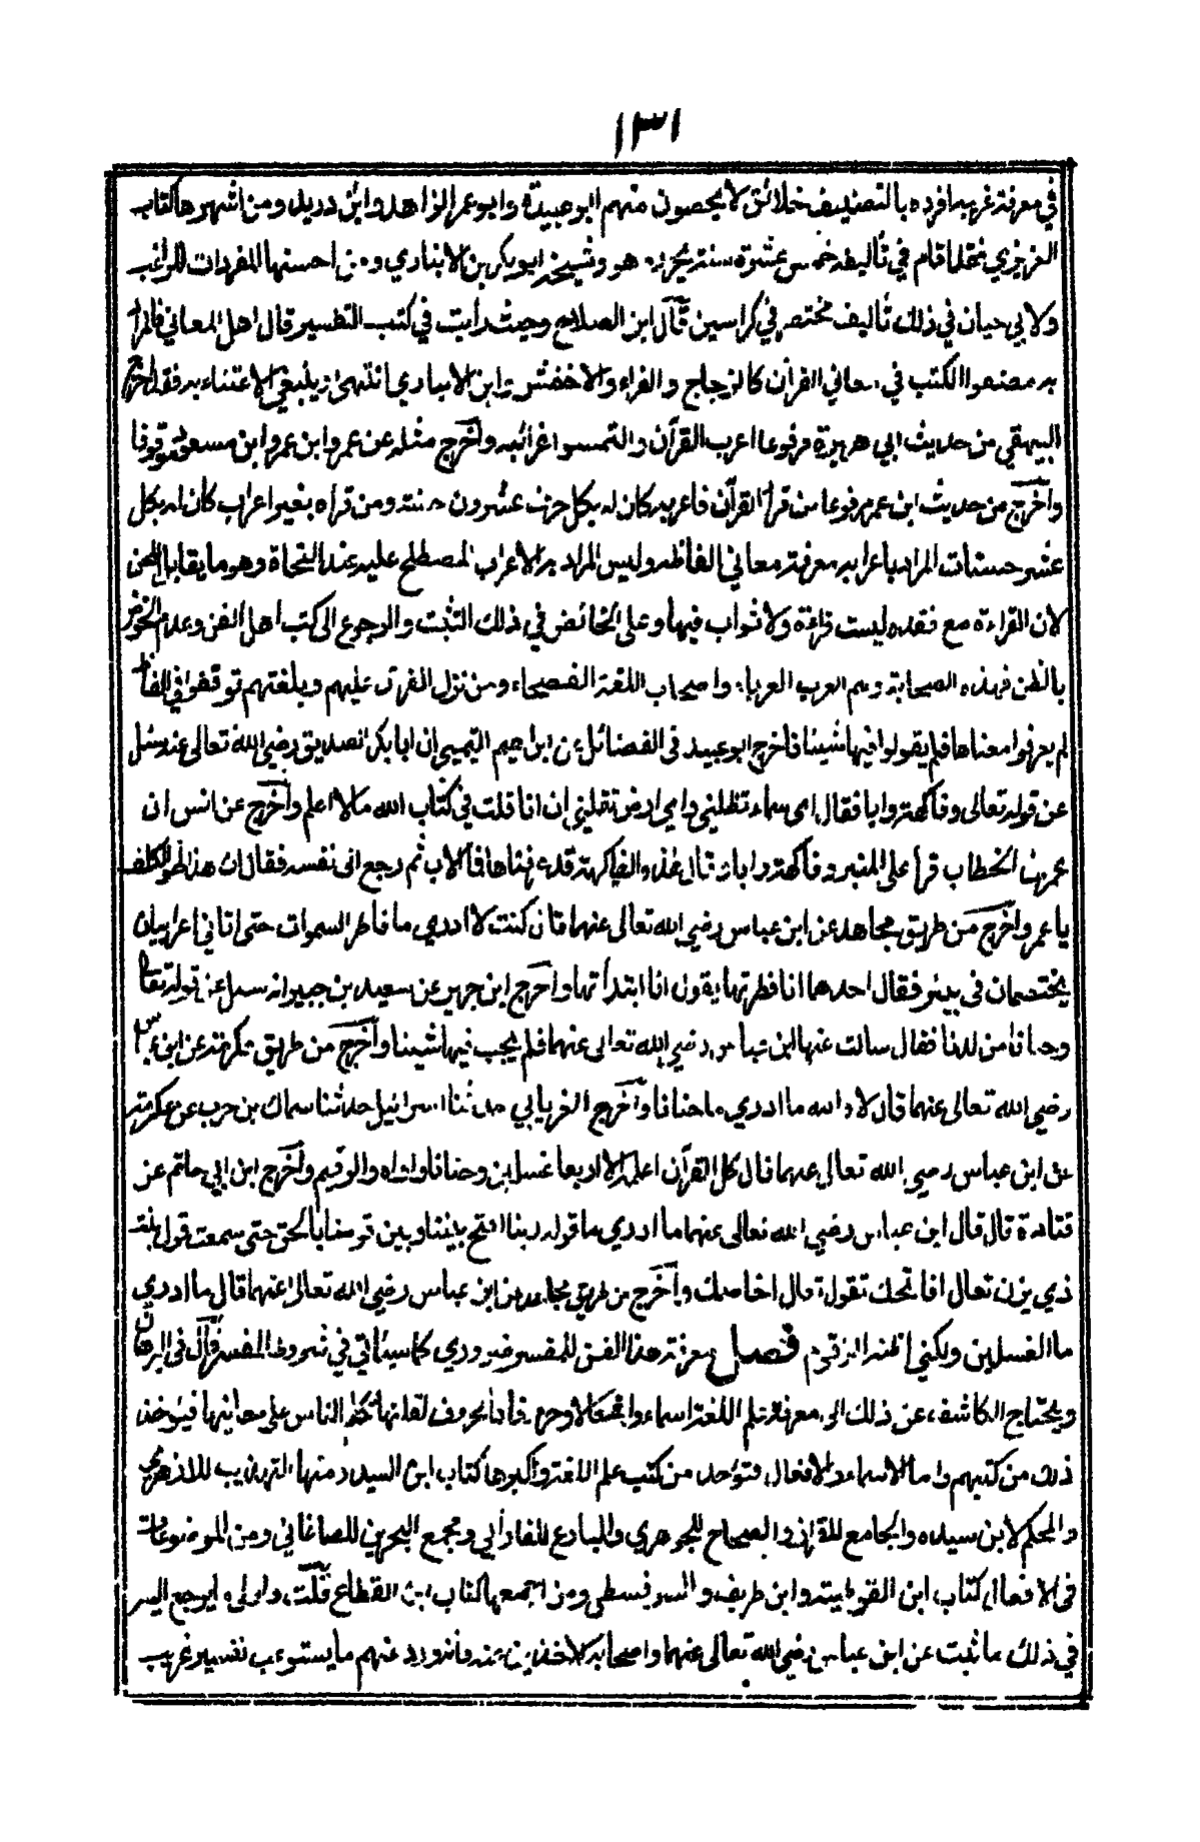 ١٣١
في معرفة غريبه افرده بالتصنيف خلائق لا يحصون منهم ابو عبيدة وابو عمر الزاهد وابن دريد ومن اشهرها كتاب
العزيزي فقد اقام في تأليفه خمس عشرة سنة يحرره هو وشيخه ابو بكر بن الانباري ومن احسنها المفردات للراغب
ولابي حيان في ذلك تأليف مختصر في كراسين قال ابن الصلاح وحيث رأيت في كتب التفسير قال اهل المعاني فالمراد
به مصنفوا الكتب في معاني القرآن كالزجاج والفراء والاخفش وابن الانباري انتهى وينبغي الاعتناء به فقد اخرج
البيهقي من حديث ابي هريرة مرفوعا اعربوا القرآن والتمسوا غرائبه واخرج مثله عن عمر وابن عمر وابن مسعود موقوفا
واخرج من حديث ابن عمر مرفوعا من قرأ القرآن فاعربه كان له بكل حرف عشرون حسنة ومن قرأه بغير اعراب كان له بكل
عشر حسنات المراد باعرابه معرفة معاني الفاظه وليس المراد به الاعراب المصطلح عليه عند النحاة وهو ما يقابل اللحن
لان القراءة مع فقده ليست قراءة ولا ثواب فيها وعلى الخائض في ذلك التثبت والرجوع الى كتب اهل الفن وعدم الخوض
بالظن فهذه الصحابة وهم العرب العرباء واصحاب اللغة الفصحاء ومن نزل القرآن عليهم وبلغتهم توقفوا في الفاظ
لم يعرفوا معناها فلم يقولوا فيها شيئا فاخرج ابو عبيد في الفضائل عن ابراهيم التيمي ان ابا بكر الصديق رضي الله تعالى عنه سئل
عن قوله تعالى وفاكهة وابا فقال اي سماء تظلني واي ارض تقلني ان انا قلت في كتاب الله ما لا اعلم واخرج عن انس ان
عمر بن الخطاب قرأ على المنبر وفاكهة وابا فقال هذه الفاكهة قد عرفناها فما الاب ثم رجع الى نفسه فقال ان هذا لهو الكلف
يا عمر واخرج من طريق مجاهد عن ابن عباس رضي الله تعالى عنهما قال كنت لا ادري ما فاطر السموات حتى اتاني اعرابيان
يختصمان في بئر فقال احدهما انا فطرتها يقول انا ابتدأتها واخرج ابن جرير عن سعيد بن جبير انه سئل عن قوله تعالى
وحنانا من لدنا فقال سالت عنها ابن عباس رضي الله تعالى عنهما فلم يجب فيها شيئا واخرج من طريق عكرمة عن ابن عباس
رضي الله تعالى عنهما قال لا والله ما ادري ما حنانا واخرج الفريابي حدثنا اسرائيل حدثنا سماك بن حرب عن عكرمة
عن ابن عباس رضي الله تعالى عنهما قال كل القرآن اعلمه الا اربعا غسلين وحنانا واواه والرقيم واخرج ابن ابي حاتم عن
قتادة قال قال ابن عباس رضي الله تعالى عنهما ما ادري ما قوله ربنا افتح بيننا وبين قومنا بالحق حتى سمعت قول بنت
ذي يزن تعال افاتحك تقول تعال اخاصمك واخرج من طريق مجاهد عن ابن عباس رضي الله تعالى عنهما قال ما ادري
ما الغسلين ولكني اظنه الزقوم فصل معرفة هذا الفن للمفسر ضروري كما سيأتي في شروط المفسر قال في البرهان
ويحتاج الكاشف عن ذلك الى معرفة علم اللغة اسماء وافعالا وحروفا فالحروف لقلتها تكلم الناس على معانيها فيؤخذ
ذلك من كتبهم واما الاسماء والافعال فتؤخذ من كتب علم اللغة واكبرها كتاب ابن السيد ومنها التهذيب للازهري
والمحكم لابن سيده والجامع للقزاز والصحاح للجوهري والبارع للفارابي ومجمع البحرين للصاغاني ومن الموضوعات
في الافعال كتاب ابن القوطية وابن طريف والسرقسطي ومن اجمعها كتاب ابن القطاع قلت واولى ما يرجع اليه
في ذلك ما ثبت عن ابن عباس رضي الله تعالى عنهما واصحابه الاخذين عنه فانه ورد عنهم ما يستوعب تفسير غريب